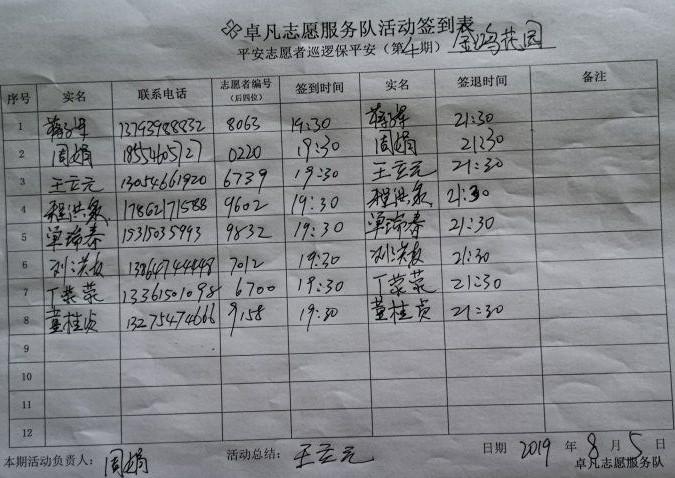 卓凡志愿服务队活动签到表
平安志愿者巡逻保平安（第4期） 金鸿花园
序号 实名 联系电话 志愿者编号（后四位） 签到时间 实名 签退时间 备注
1 13793988832 8063 19:30 21:30
2 周娟 18554605727 0220 19:30 周娟 21:30
3 王立元 13054661920 6739 19:30 王立元 21:30
4 程洪 17862171588 9602 19:30 程洪 21:30
5 单瑞春 15315035993 9832 19:30 单瑞春 21:30
6 刘洪友 13864744448 7012 19:30 刘洪友 21:30
7 丁荣荣 13361501098 6700 19:30 丁荣荣 21:30
8 董桂贞 13275474666 9158 19:30 董桂贞 21:30
9
10
11
12
本期活动负责人： 周娟 活动总结： 王立元 日期 2019 年 8 月 5 日
卓凡志愿服务队